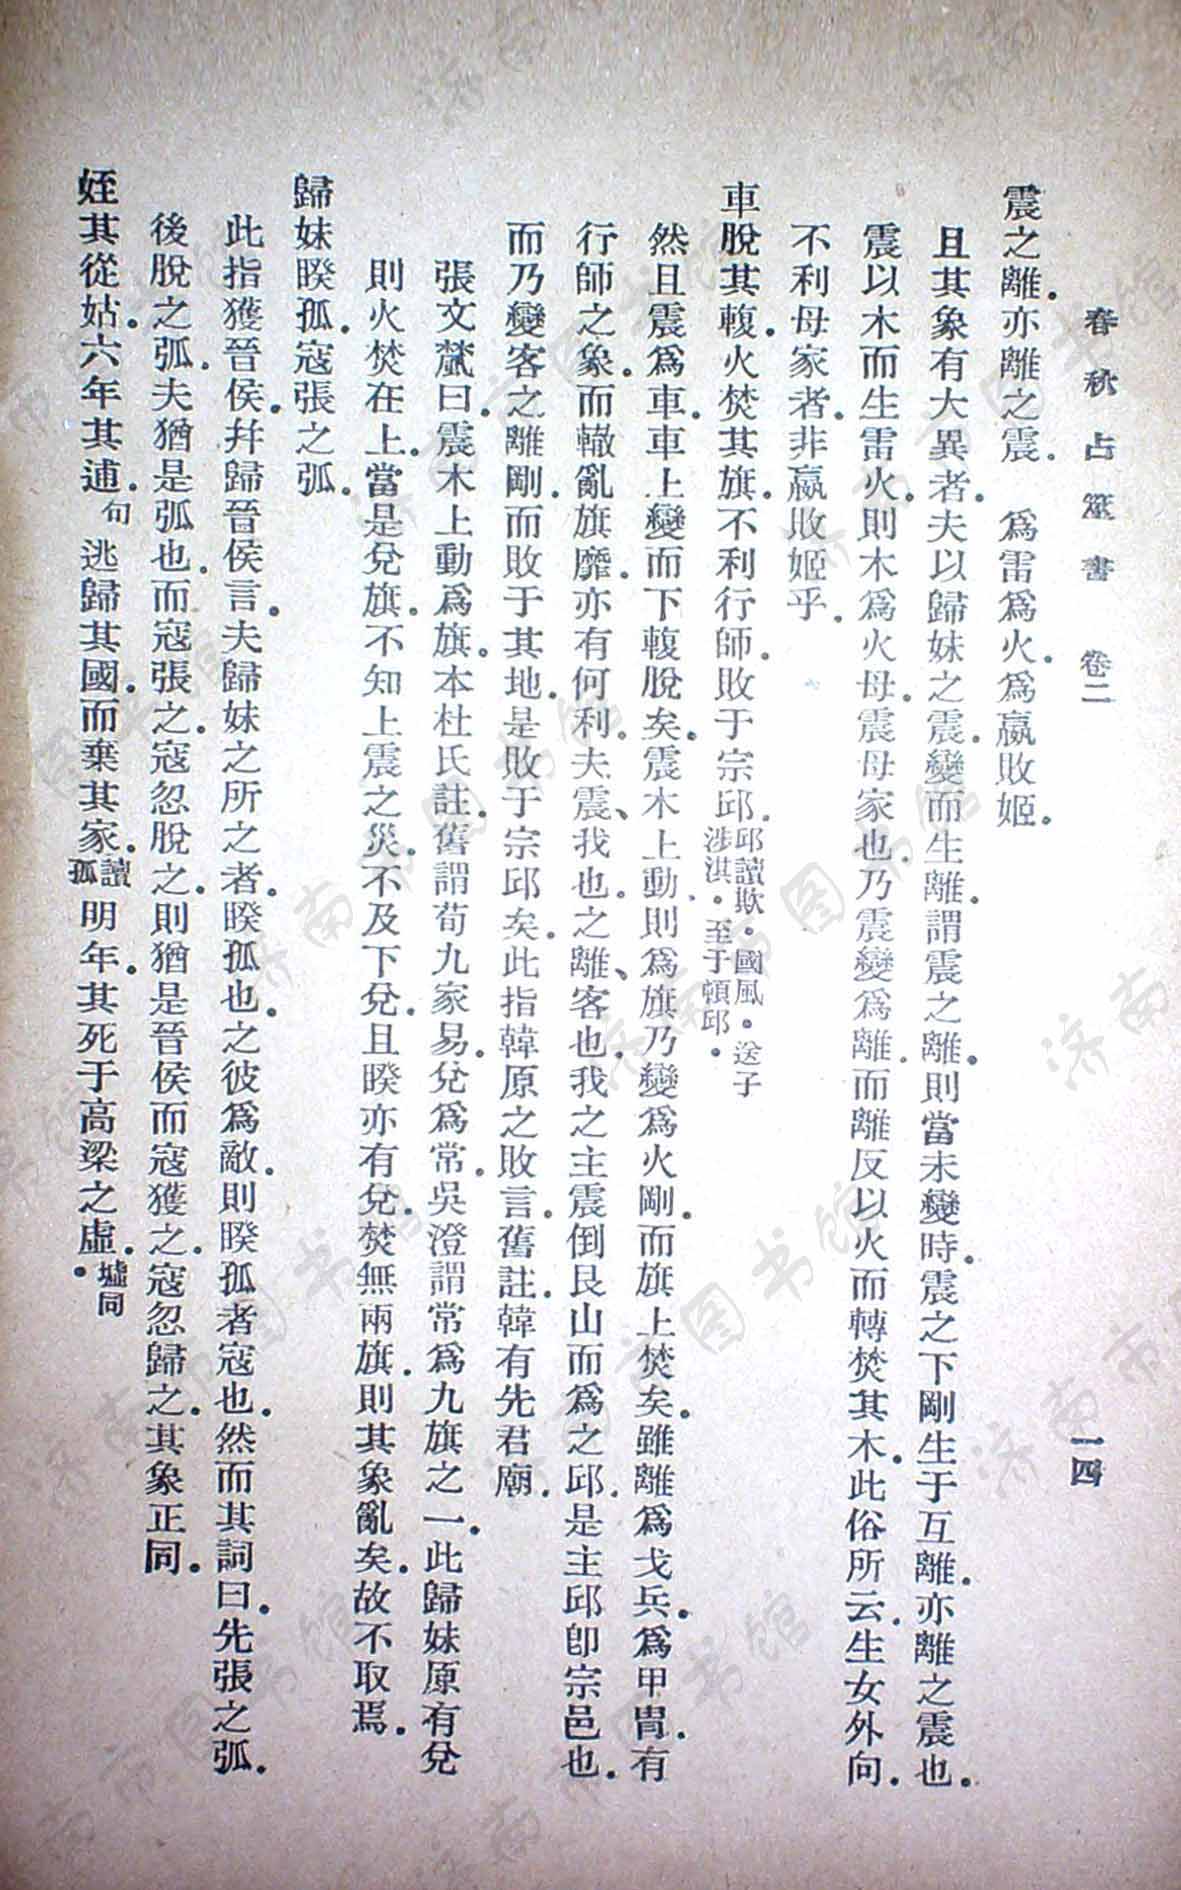 春秋占筮書　卷二　一四
震之離。亦離之震。　爲雷爲火。爲嬴敗姬。
且其象有大異者。夫以歸妹之震。變而生離。謂震之離。則當未變時。震之下剛生于互離。亦離之震也。
震以木而生雷火。則木爲火母。震母家也。乃震變爲離。而離反以火而轉焚其木。此俗所云。生女外向。
不利母家者。非嬴敗姬乎。
車脫其輹。火焚其旗。不利行師。敗于宗邱。邱讀欺。國風。送子涉淇。至于頓邱。
然且震爲車。車上變而下輹脫矣。震木上動。則爲旗。乃變爲火剛。而旗上焚矣。雖離爲戈兵。爲甲冑。有
行師之象。而轍亂旗靡。亦有何利。夫震、我也。之離、客也。我之主震倒艮山而爲之邱。是主邱卽宗邑也。
而乃變客之離剛。而敗于其地。是敗于宗邱矣。此指韓原之敗言。舊註。韓有先君廟。
張文虨曰。震木上動爲旗。本杜氏註。舊謂荀九家易。兌爲常。吳澄謂常爲九旗之一。此歸妹原有兌
則火焚在上。當是兌旗。不知上震之災。不及下兌。且睽亦有兌。焚無兩旗。則其象亂矣。故不取焉。
歸妹睽孤。寇張之弧。
此指獲晉侯。幷歸晉侯言。夫歸妹之所之者。睽孤也。之彼爲敵。則睽孤者寇也。然而其詞曰。先張之弧。
後脫之弧。夫猶是弧也。而寇張之。寇忽脫之。則猶是晉侯而寇獲之。寇忽歸之。其象正同。
姪其從姑。六年其逋。句　逃歸其國。而棄其家。讀孤　明年。其死于高梁之虛。墟同